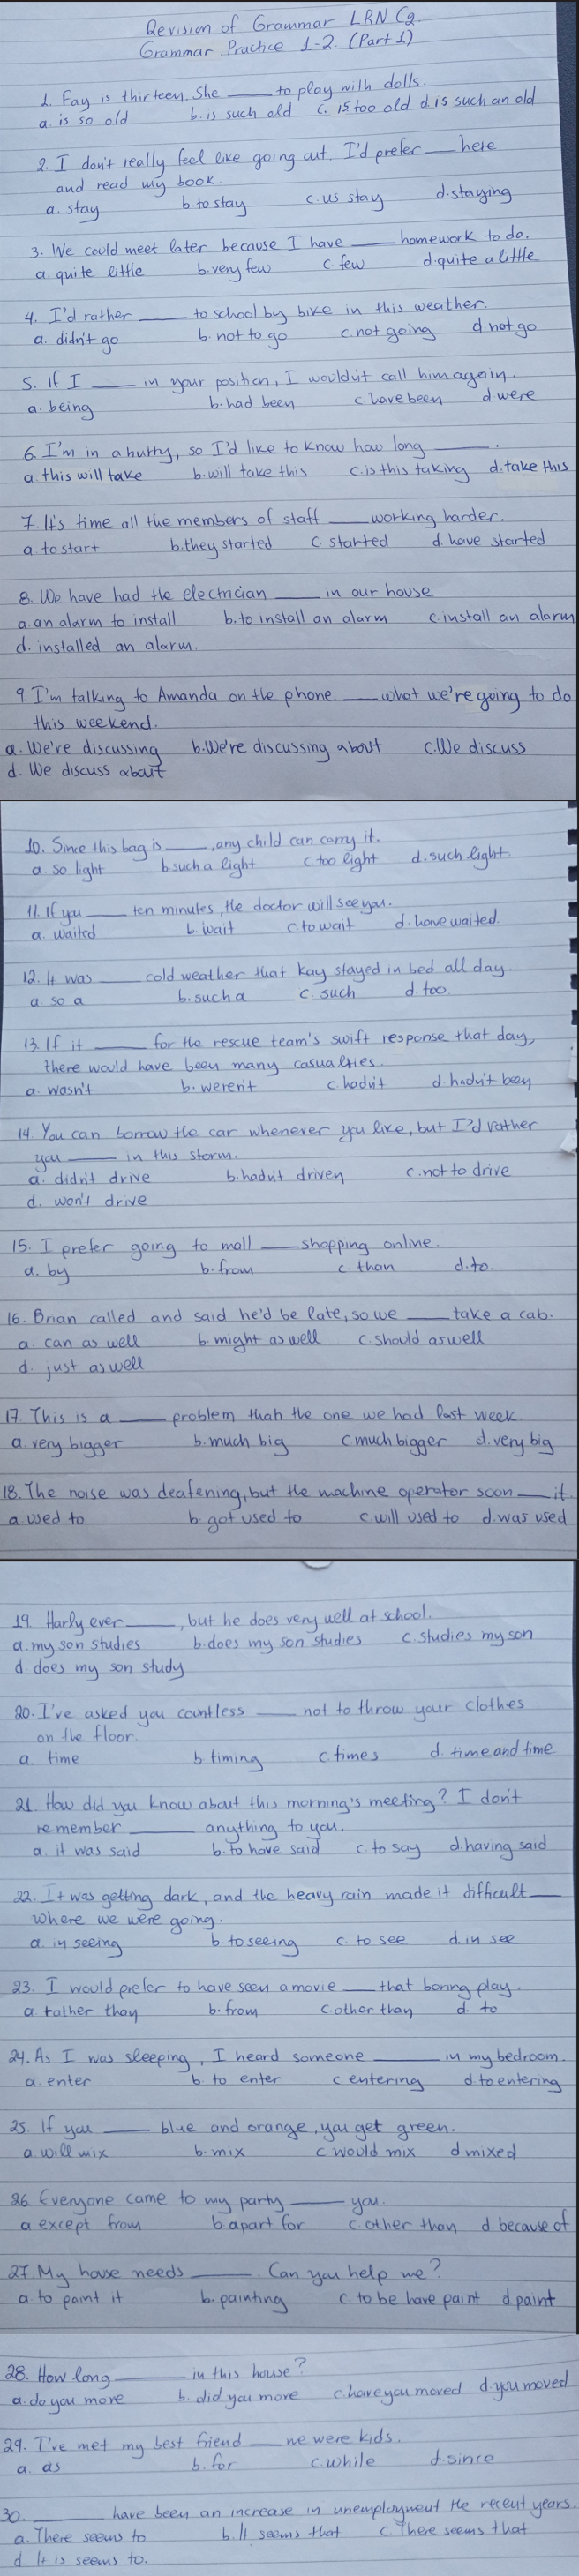 Revision of Grammar LRN C2.
Grammar Practice 1-2. (Part 1)
1. Fay is thirteen. She ___ to play with dolls.
a. is so old b. is such old c. is too old d. is such an old
2. I don't really feel like going out. I'd prefer ___ here
and read my book.
a. stay b. to stay c. us stay d. staying
3. We could meet later because I have ___ homework to do.
a. quite little b. very few c. few d. quite a little
4. I'd rather ___ to school by bike in this weather.
a. didn't go b. not to go c. not going d. not go
5. If I ___ in your position, I wouldn't call him again.
a. being b. had been c. have been d. were
6. I'm in a hurry, so I'd like to know how long ___.
a. this will take b. will take this c. is this taking d. take this
7. It's time all the members of staff ___ working harder.
a to start b. they started c. started d. have started
8. We have had the electrician ___ in our house
a. an alarm to install b. to install an alarm c. install an alarm
d. installed an alarm.
9. I'm talking to Amanda on the phone. ___ what we're going to do
this weekend.
a. We're discussing b. We're discussing about c. We discuss
d. We discuss about
10. Since this bag is ___, any child can carry it.
a. so light b such a light c too light d. such light
11. If you ___ ten minutes, the doctor will see you.
a. waited b. wait c. to wait d. have waited
12. It was ___ cold weather that Kay stayed in bed all day.
a so a b. such a c. such d. too
13. If it ___ for the rescue team's swift response that day,
there would have been many casualties.
a. wasn't b. weren't c. hadn't d. hadn't been
14. You can borrow the car whenever you like, but I'd rather
you ___ in this storm.
a. didn't drive b. hadn't driven c. not to drive
d. won't drive
15. I prefer going to mall ___ shopping online.
a. by b. from c. than d. to.
16. Brian called and said he'd be late, so we ___ take a cab.
a. can as well b. might as well c. should as well
d. just as well
17. This is a ___ problem than the one we had last week.
a. very bigger b. much big c. much bigger d. very big
18. The noise was deafening, but the machine operator soon ___ it.
a used to b. got used to c. will used to d. was used
19. Harly ever ___, but he does very well at school.
a. my son studies b. does my son studies c. studies my son
d. does my son study
20. I've asked you countless ___ not to throw your clothes
on the floor.
a. time b. timing c. times d. time and time
21. How did you know about this morning's meeting? I don't
remember ___ anything to you.
a. it was said b. to have said c. to say d. having said
22. It was getting dark, and the heavy rain made it difficult ___
where we were going.
a. in seeing b. to seeing c. to see d. in see
23. I would prefer to have seen a movie ___ that boring play.
a. rather than b. from c. other than d. to
24. As I was sleeping, I heard someone ___ in my bedroom.
a. enter b. to enter c. entering d. to entering
25. If you ___ blue and orange, you get green.
a. will mix b. mix c. would mix d. mixed
26 Everyone came to my party ___ you.
a except from b. apart for c. other than d. because of
27. My house needs ___. Can you help me?
a to paint it b. painting c. to be have paint d. paint
28. How long ___ in this house?
a. do you move b. did you move c. have you moved d. you moved
29. I've met my best friend ___ we were kids.
a. as b. for c. while d. since
30. ___ have been an increase in unemployment the recent years.
a. There seems to b. It seems that c. There seems that
d. It is seems to.